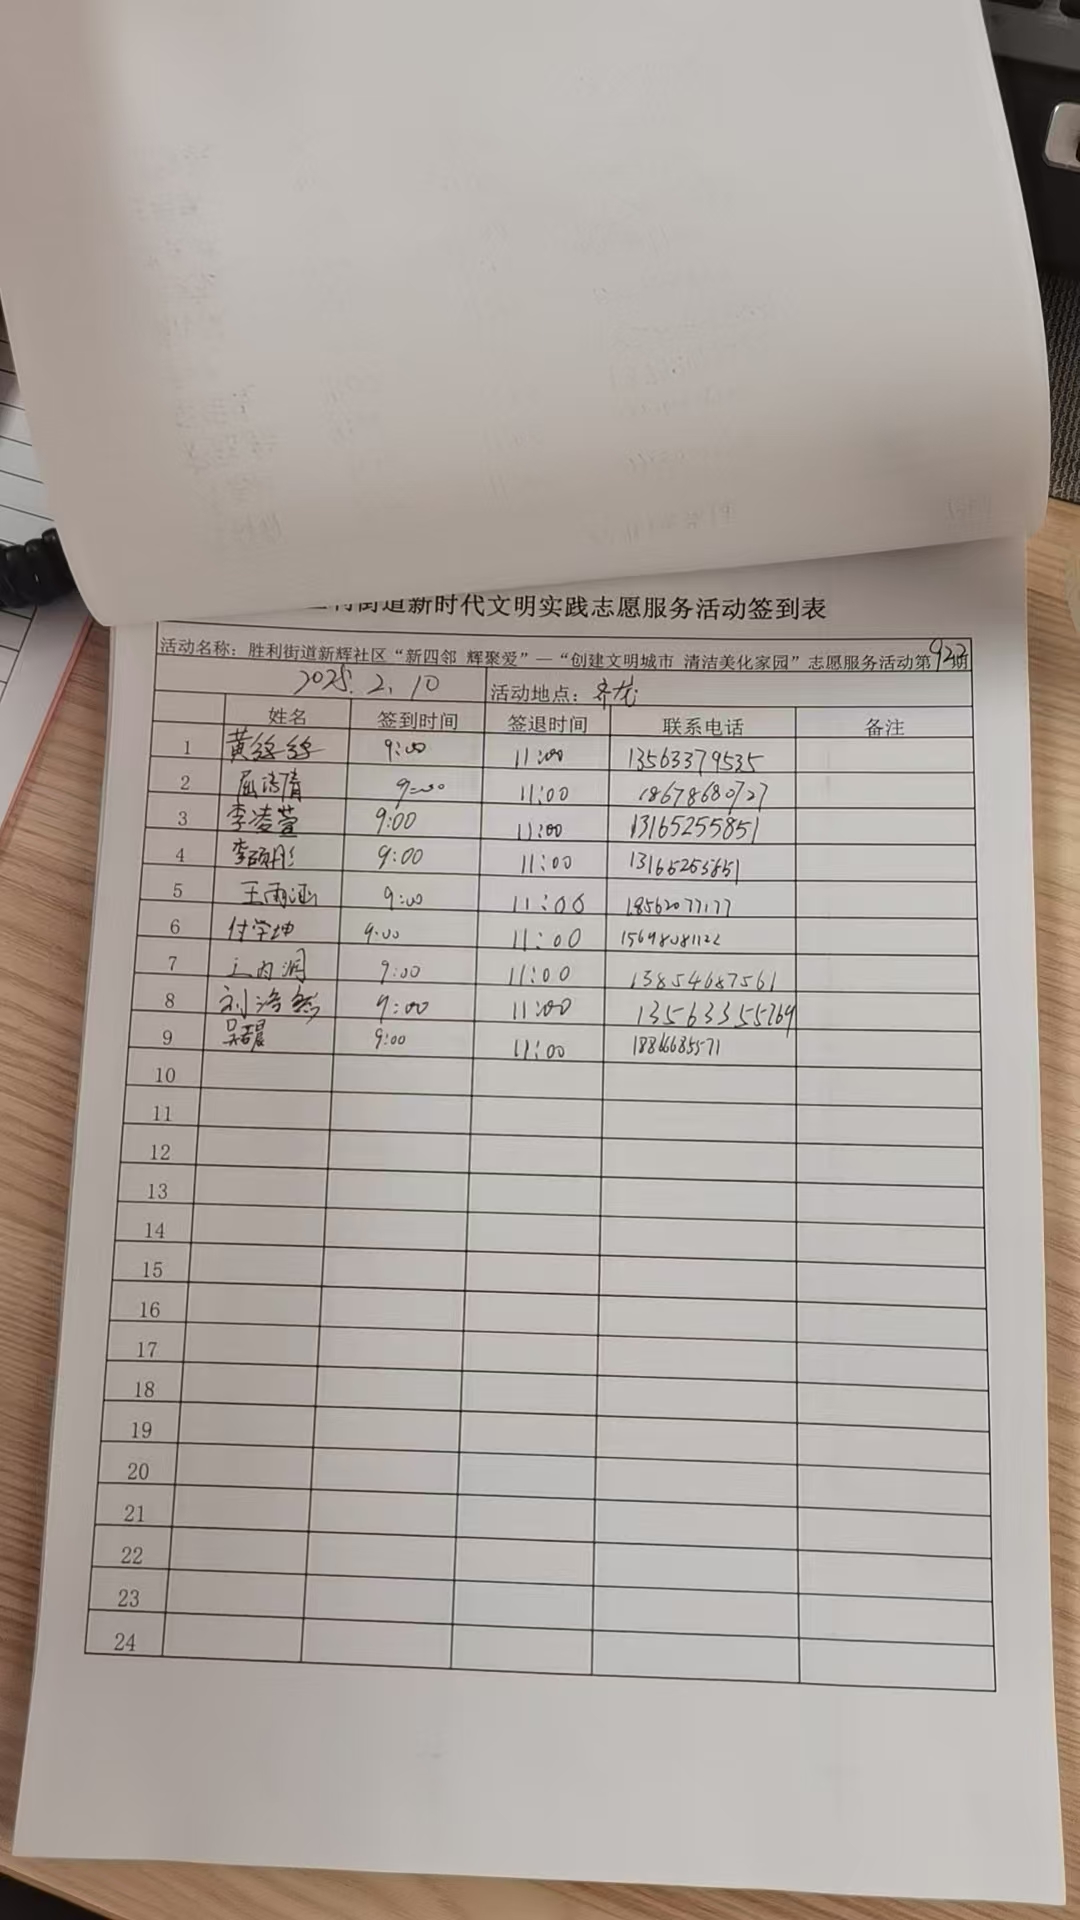 街道新时代文明实践志愿服务活动签到表
活动名称：胜利街道新辉社区“新四邻 辉聚爱”—“创建文明城市 清洁美化家园”志愿服务活动第922期
2025.2.10 活动地点：
姓名 签到时间 签退时间 联系电话 备注
1 黄绎绎 9:00 11:00 13563379535
2 屈清清 9:00 11:00 18678680727
3 李凌萱 9:00 11:00 13165255851
4 李硕彤 9:00 11:00 13165255851
5 王雨涵 9:00 11:00 18562077177
6 付学坤 9:00 11:00 15698081122
7 9:00 11:00 13854687561
8 刘浩然 9:00 11:00 13563355769
9 吴晨 9:00 11:00 18866685571
10
11
12
13
14
15
16
17
18
19
20
21
22
23
24